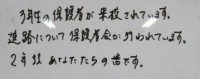 3年生の保護者が来校されています。
進路について保護者会が行われています。
2年後あなたたちの番です。